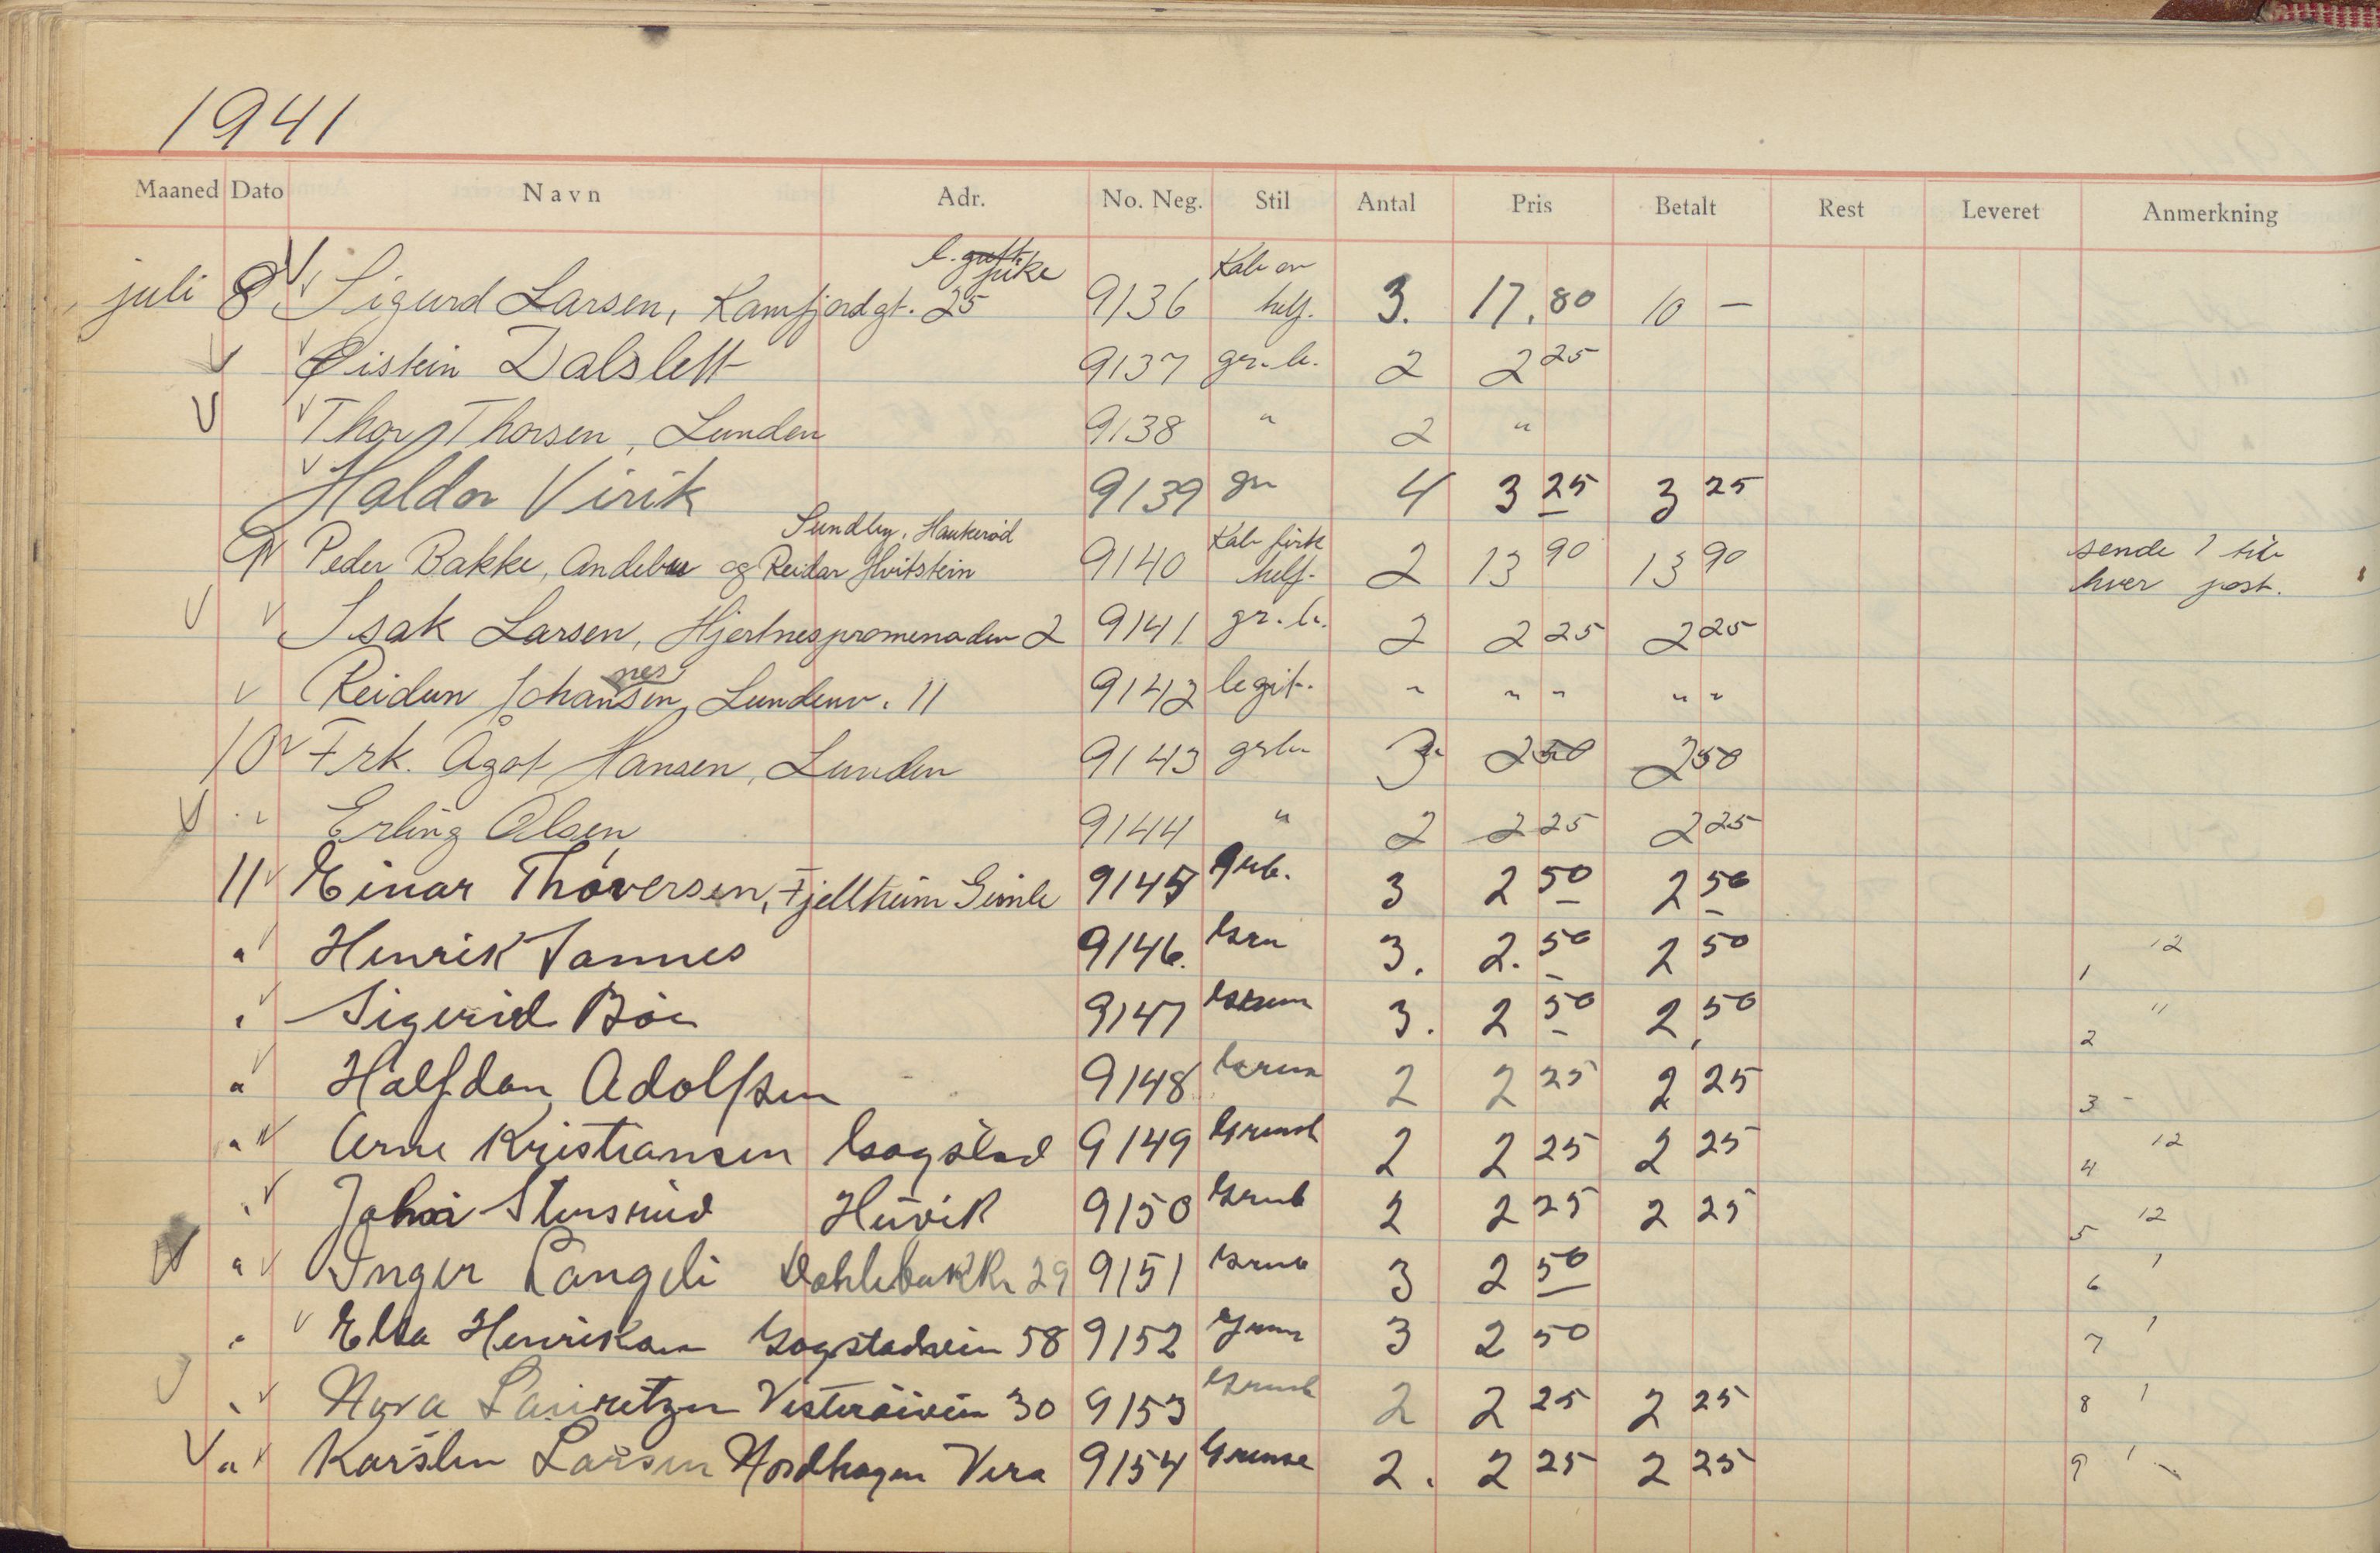 1941
Maaned Dato Navn Adr. No. Neg. Stil Antal Pris Betalt Rest Leveret Anmerkning
l. gutt pike Kab av
juli 8 Sigurd Larsen, Kamfjordgt. 25 9136 helf. 3. 17.80 10 —
Øistein Dalslett 9137 gr.b. 2 2 25
Thor Thorsen, Lunden 9138 " 2 "
Haldor Virik 9139 gr 4 3 25 3 25
Sundby, Haukerød Kab firk sende 1 til
9 Peder Bakke, Andebu og Reidar Hvitstein 9140 helf. 2 13 90 13 90 hver post.
Isak Larsen, Hjertnespromenaden 2 9141 gr.b. 2 2 25 2 25
nes
Reidun Johansen, Lundenv. 11 9142 legit. " " " " "
10 Frk. Ågot Hansen, Lunden 9143 grb 3 2 50 2 50
" Erling Olsen 9144 " 2 2 25 2 25
11 Einar Thoversen, Fjellheim Gimle 9145 grb. 3 2 50 2 50
" Henrik Sannes 9146. 3. 2. 50 2 50 1 12
" Sigurid Bøe 9147 3. 2 50 2, 50 2 "
" Halfdan Adolfsen 9148 2 2 25 2 25 3 -
" Arne Kristiansen Gogstad 9149 Grense 2 2 25 2 25 4 12
" Stensrud Huvik 9150 Grub 2 2 25 2 25 5 12
" Inger Langeli Dahlebakk 29 9151 3 2 50 6 1
" Elsa Henriksen Gogstadvein 58 9152 3 2 50 7 1
" Nora Lauritzen Vesterøivein 30 9153 2 2 25 2 25 8 1
" Karsten Larsen Nordhagen Vera 9154 Grense 2. 2 25 2 25 9 1